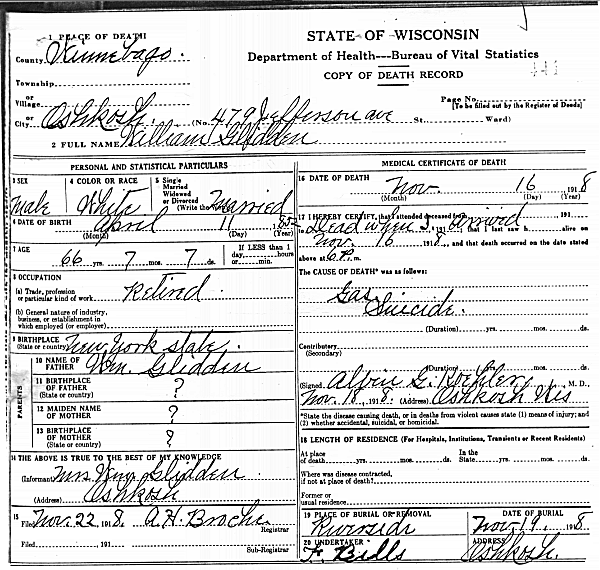 STATE OF WISCONSIN
Department of Health---Bureau of Vital Statistics
COPY OF DEATH RECORD
441
1 PLACE OF DEATH
County Winnebago.
Township
or
Village
or
City Oshkosh. (No. 479 Jefferson ave St. Ward)
Page No.
[To be filled out by the Register of Deeds]
2 FULL NAME William Glidden
PERSONAL AND STATISTICAL PARTICULARS
3 SEX male
4 COLOR OR RACE White
5 Single Married Widowed or Divorced (Write the word) Married
6 DATE OF BIRTH April 11 185
(Month) (Day) (Year)
7 AGE 66 yrs. 7 mos. 7 ds.
If LESS than 1 day, hours or min.
8 OCCUPATION
(a) Trade, profession or particular kind of work Retired
(b) General nature of industry, business, or establishment in which employed (or employer)
9 BIRTHPLACE (State or country) New York state.
PARENTS
10 NAME OF FATHER Wm. Glidden
11 BIRTHPLACE OF FATHER (State or country) ?
12 MAIDEN NAME OF MOTHER ?
13 BIRTHPLACE OF MOTHER (State or country) ?
14 THE ABOVE IS TRUE TO THE BEST OF MY KNOWLEDGE
(Informant) Mrs Wm. Glidden
(Address) Oshkosh
15 Filed Nov. 22 1918. A.H. Broche
Registrar
Filed 191
Sub-Registrar
MEDICAL CERTIFICATE OF DEATH
16 DATE OF DEATH Nov. 16 1918
(Month) (Day) (Year)
17 I HEREBY CERTIFY, that I attended deceased from 191
to Dead when I arrived 191 , that I last saw h alive on
Nov. 16 1918, and that death occurred on the date stated
above at 6 P. m.
The CAUSE OF DEATH* was as follows:
Gas
Suicide.
(Duration) yrs. mos. ds.
Contributory
(Secondary)
(Duration) yrs. mos. ds.
(Signed) G. Koehler, M. D.
Nov. 18 1918. (Address) Oshkosh Wis
*State the disease causing death, or in deaths from violent causes state (1) means of injury; and
(2) whether accidental, suicidal, or homicidal.
18 LENGTH OF RESIDENCE (For Hospitals, Institutions, Transients or Recent Residents)
At place of death yrs. mos. ds. In the State yrs. mos. ds.
Where was disease contracted,
if not at place of death?
Former or
usual residence
19 PLACE OF BURIAL OR REMOVAL Riverside
DATE OF BURIAL Nov 19. 1918
20 UNDERTAKER F. Bills
ADDRESS Oshkosh.